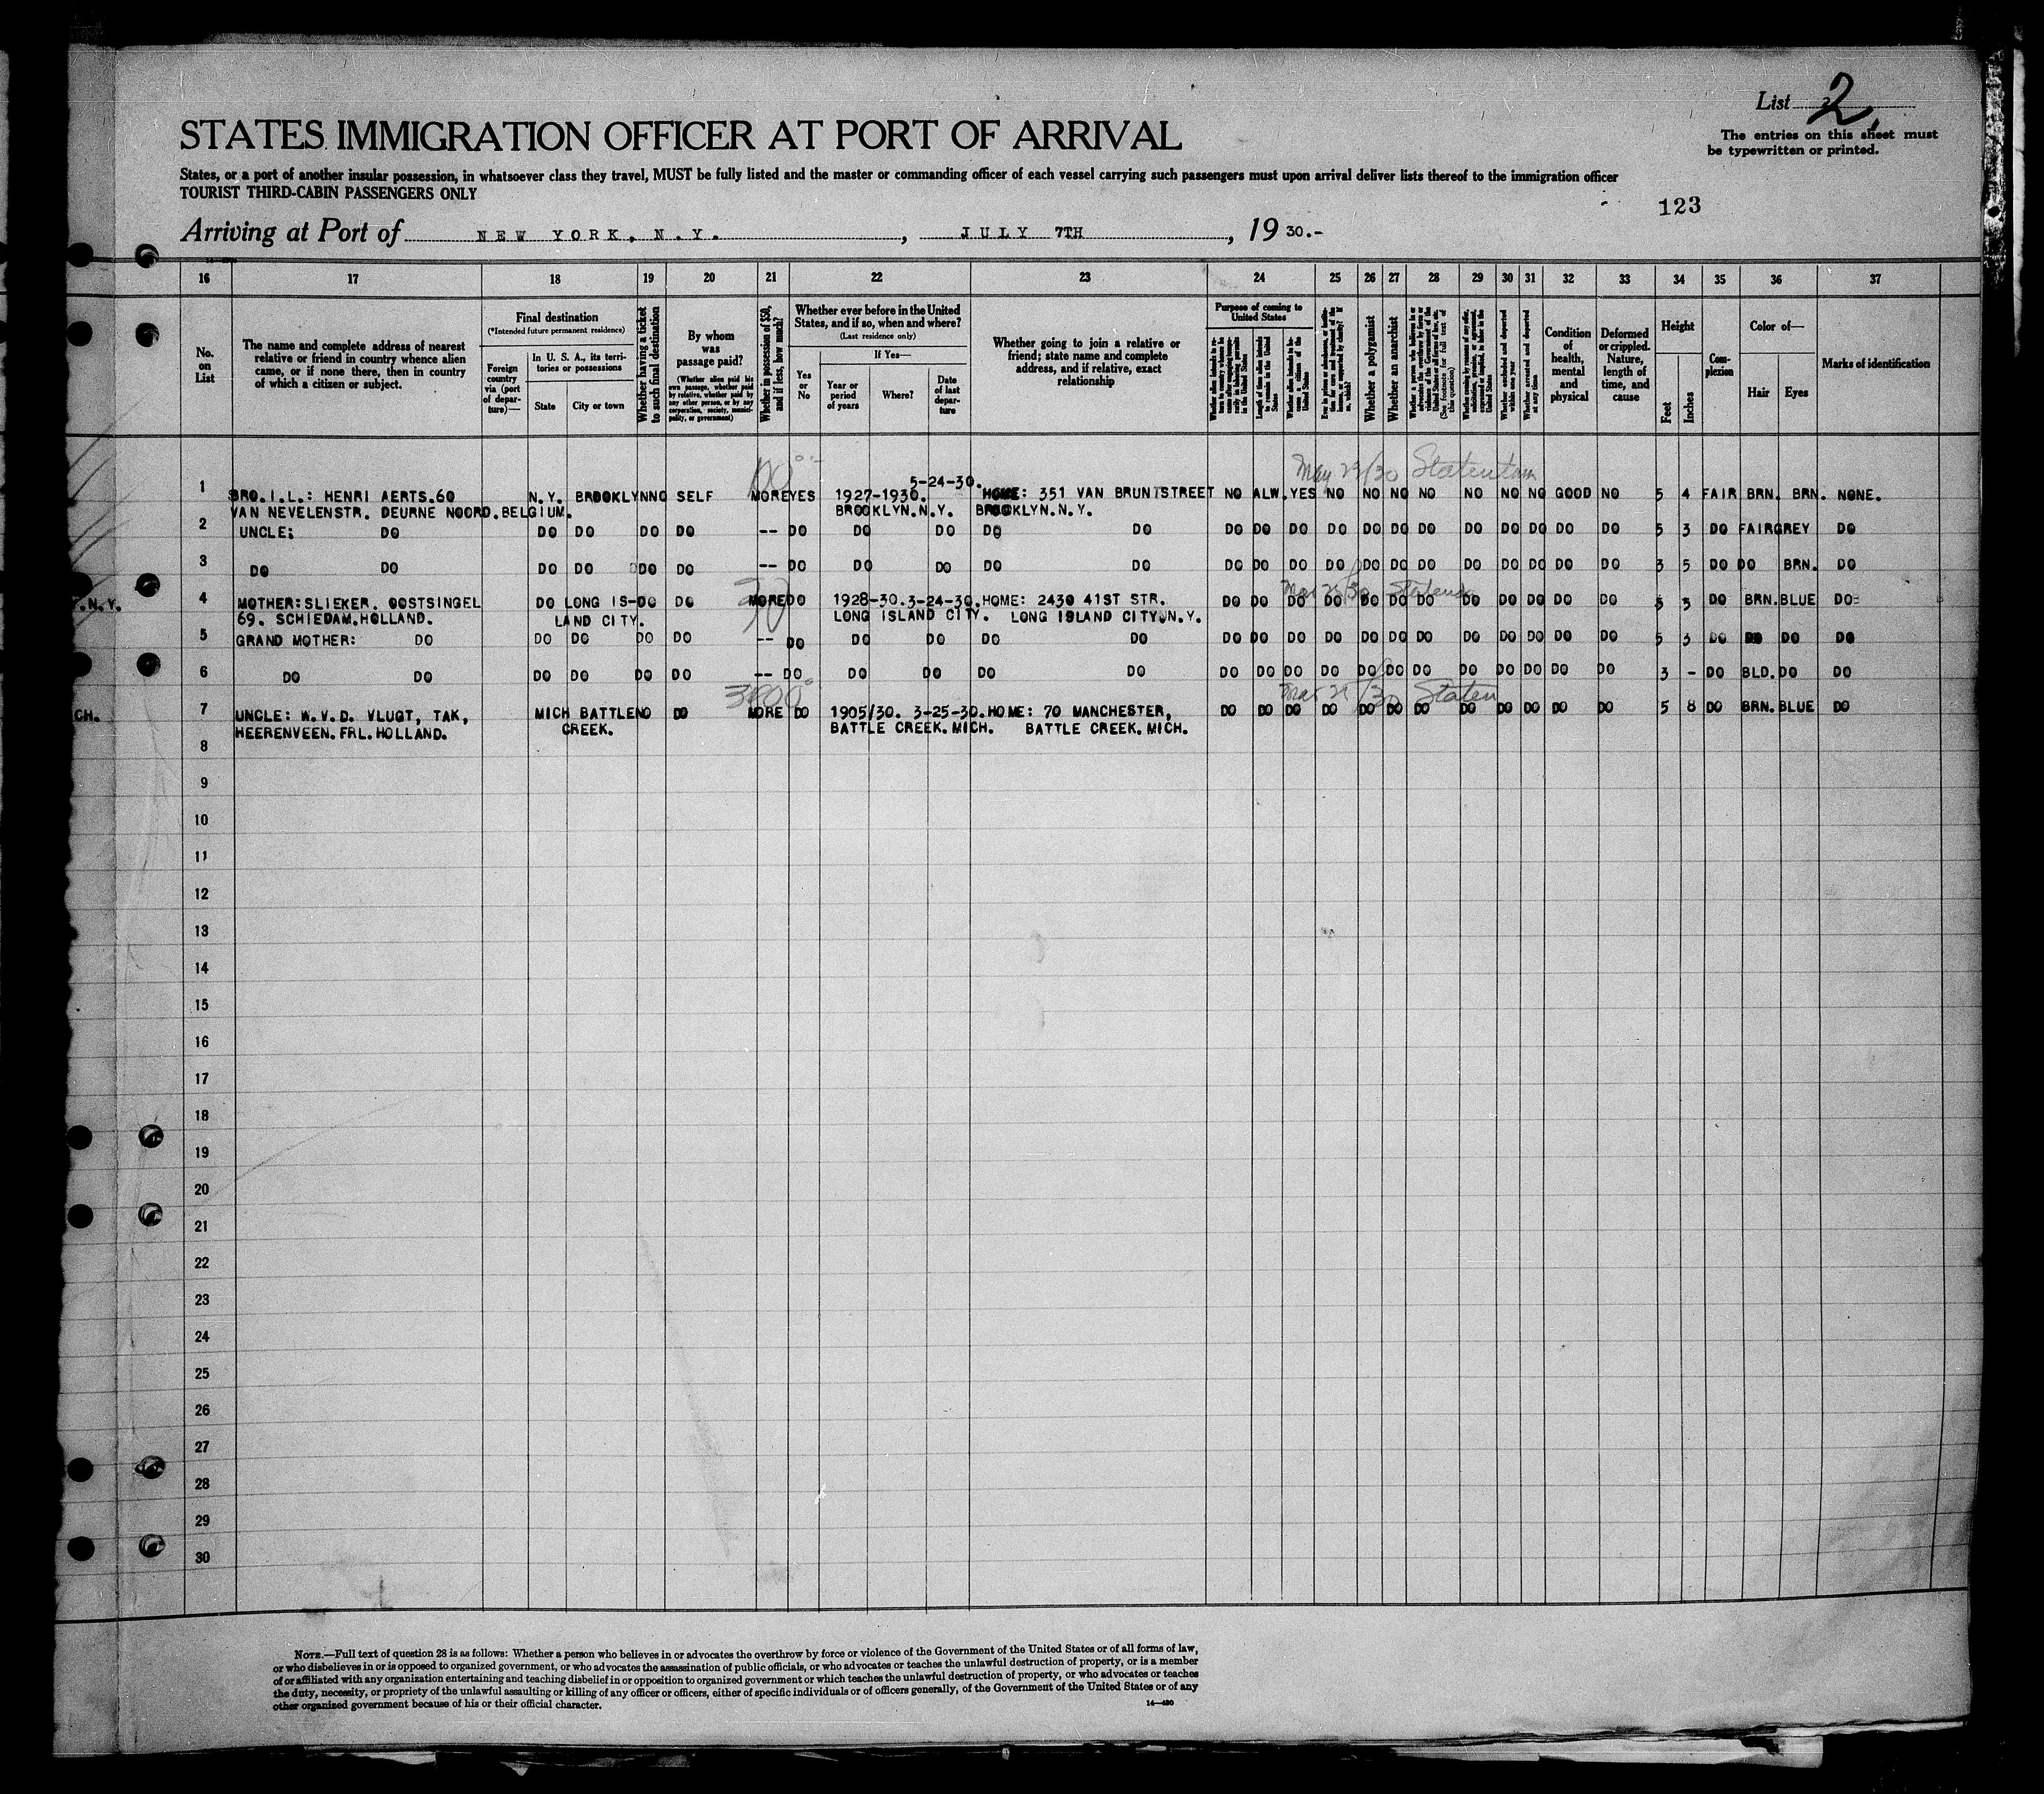 List 2
2
The entries on this sheet must
be typewritten or printed.
STATES IMMIGRATION OFFICER AT PORT OF ARRIVAL
States, or a port of another insular possession, in whatsoever class they travel, MUST be fully listed and the master or commanding officer of each vessel carrying such passengers must upon arrival deliver lists thereof to the immigration officer
TOURIST THIRD-CABIN PASSENGERS ONLY
123
Arriving at Port of NEW YORK, N.Y. , JULY 7TH , 19 30.-
16 17 18 19 20 21 22 23 24 25 26 27 28 29 30 31 32 33 34 35 36 37
No. on List
The name and complete address of nearest relative or friend in country whence alien came, or if none there, then in country of which a citizen or subject.
Final destination
(*Intended future permanent residence)
Foreign country via (port of departure)—
In U. S. A., its territories or possessions
State
City or town
Whether having a ticket to such final destination
By whom was passage paid?
(Whether alien paid his own passage, whether paid by relative, whether paid by any other person, or by any corporation, society, municipality, or government)
Whether in possession of $50, and if less, how much?
Whether ever before in the United States, and if so, when and where?
(Last residence only)
Yes or No
If Yes—
Year or period of years
Where?
Date of last departure
Whether going to join a relative or friend; state name and complete address, and if relative, exact relationship
Purpose of coming to United States
Length of time alien intends to remain in the United States
Whether alien intends to become a citizen of the United States
Whether a polygamist
Whether an anarchist
Whether excluded and deported within one year
Whether arrested and deported at any time
Condition of health, mental and physical
Deformed or crippled. Nature, length of time, and cause
Height
Feet
Inches
Complexion
Color of—
Hair
Eyes
Marks of identification
100 May 29/30 Statendam
5-24-30.
1 BRO.I.L.: HENRI AERTS.60 N.Y. BROOKLYN NO SELF MORE YES 1927-1930. HOME: 351 VAN BRUNT STREET NO ALW. YES NO NO NO NO NO NO NO GOOD NO 5 4 FAIR BRN. BRN. NONE.
VAN NEVELENSTR. DEURNE NOORD.BELGIUM. BROOKLYN.N.Y. BROOKLYN.N.Y.
2 UNCLE: DO DO DO DO DO -- DO DO DO DO DO DO DO DO DO DO DO DO DO DO DO DO DO 5 3 DO FAIR GREY DO
3 DO DO DO DO DO DO -- DO DO DO DO DO DO DO DO DO DO DO DO DO DO DO DO DO 3 5 DO DO BRN. DO
.N.Y. 4 MOTHER:SLIEKER. OOSTSINGEL DO LONG IS- DO DO MORE DO 1928-30. 3-24-30. HOME: 2430 41ST STR. DO DO DO DO DO DO DO DO DO DO DO DO 5 3 DO BRN. BLUE DO
69. SCHIEDAM.HOLLAND. LAND CITY. LONG ISLAND CITY. LONG ISLAND CITY.N.Y.
5 GRAND MOTHER: DO DO DO DO DO -- DO DO DO DO DO DO DO DO DO DO DO DO DO DO DO DO DO 5 3 DO DO DO DO
6 DO DO DO DO DO DO -- DO DO DO DO DO DO DO DO DO DO DO DO DO DO DO DO DO 3 - DO BLD. DO DO
3000 Mar 25/30 Staten
CH. 7 UNCLE: W.V.D. VLUGT, TAK, MICH BATTLE NO DO MORE DO 1905/30. 3-25-30. HOME: 70 MANCHESTER, DO DO DO DO DO DO DO DO DO DO DO DO 5 8 DO BRN. BLUE DO
HEERENVEEN.FRL.HOLLAND. CREEK. BATTLE CREEK.MICH. BATTLE CREEK.MICH.
8
9
10
11
12
13
14
15
16
17
18
19
20
21
22
23
24
25
26
27
28
29
30
NOTE.—Full text of question 28 is as follows: Whether a person who believes in or advocates the overthrow by force or violence of the Government of the United States or of all forms of law,
or who disbelieves in or is opposed to organized government, or who advocates the assassination of public officials, or who advocates or teaches the unlawful destruction of property, or is a member
of or affiliated with any organization entertaining and teaching disbelief in or opposition to organized government or which teaches the unlawful destruction of property, or who advocates or teaches
the duty, necessity, or propriety of the unlawful assaulting or killing of any officer or officers, either of specific individuals or of officers generally, of the Government of the United States or of any
other organized government because of his or their official character.
14—480